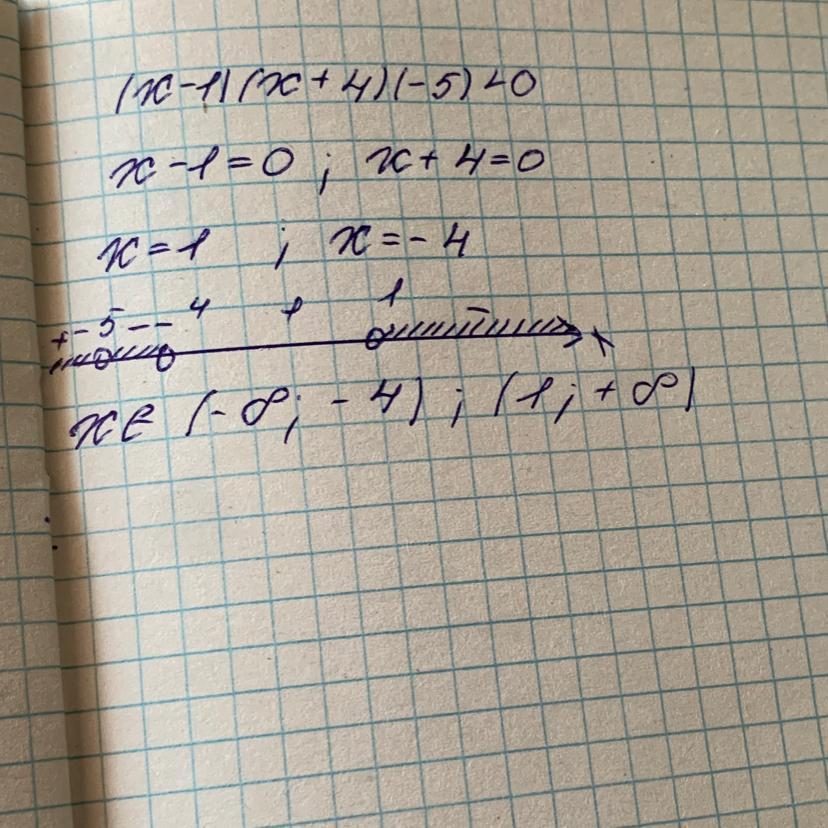 (x-1)(x+4)(-5)<0
x-1=0 ; x+4=0
x=1 ; x=-4
+ -5 - -4 + 1 - x
x∈ (-∞; -4) ; (1; +∞)